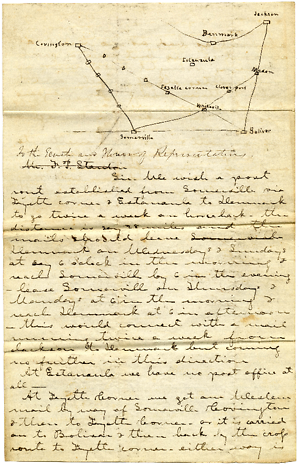 Jackson
Denmark
Covington
Estanaula
Medon
Fayette corner
Cloverport
Somerville
Bolivar
To the Senate and House of Representatives
Mr. F. P. Stanton
Sir We wish a post
rout established from Somerville via
Fayette corner & Estanaula to Denmark
to go twice a week on horseback the
distance is
mails should leave
Denmark on Wednesdays & Sundays
at 6 o'clock in the morning &
reach Somerville by 6 in the evening
lease Somerville on Thursdays &
Mondays at 6 in the morning &
reach Denmark at 6 in afternoon
this would connect with a mail
running twice a week from
Jackson to Denmark but coming
no further in this direction
At Estanaula we have no post office at
all —
At Fayette Corner we get our Western
mail by way of Somerville Covington
& then to Fayette Corner or it is carried
on to Bolivar & then back by the cross
route to Fayette Corner either way is